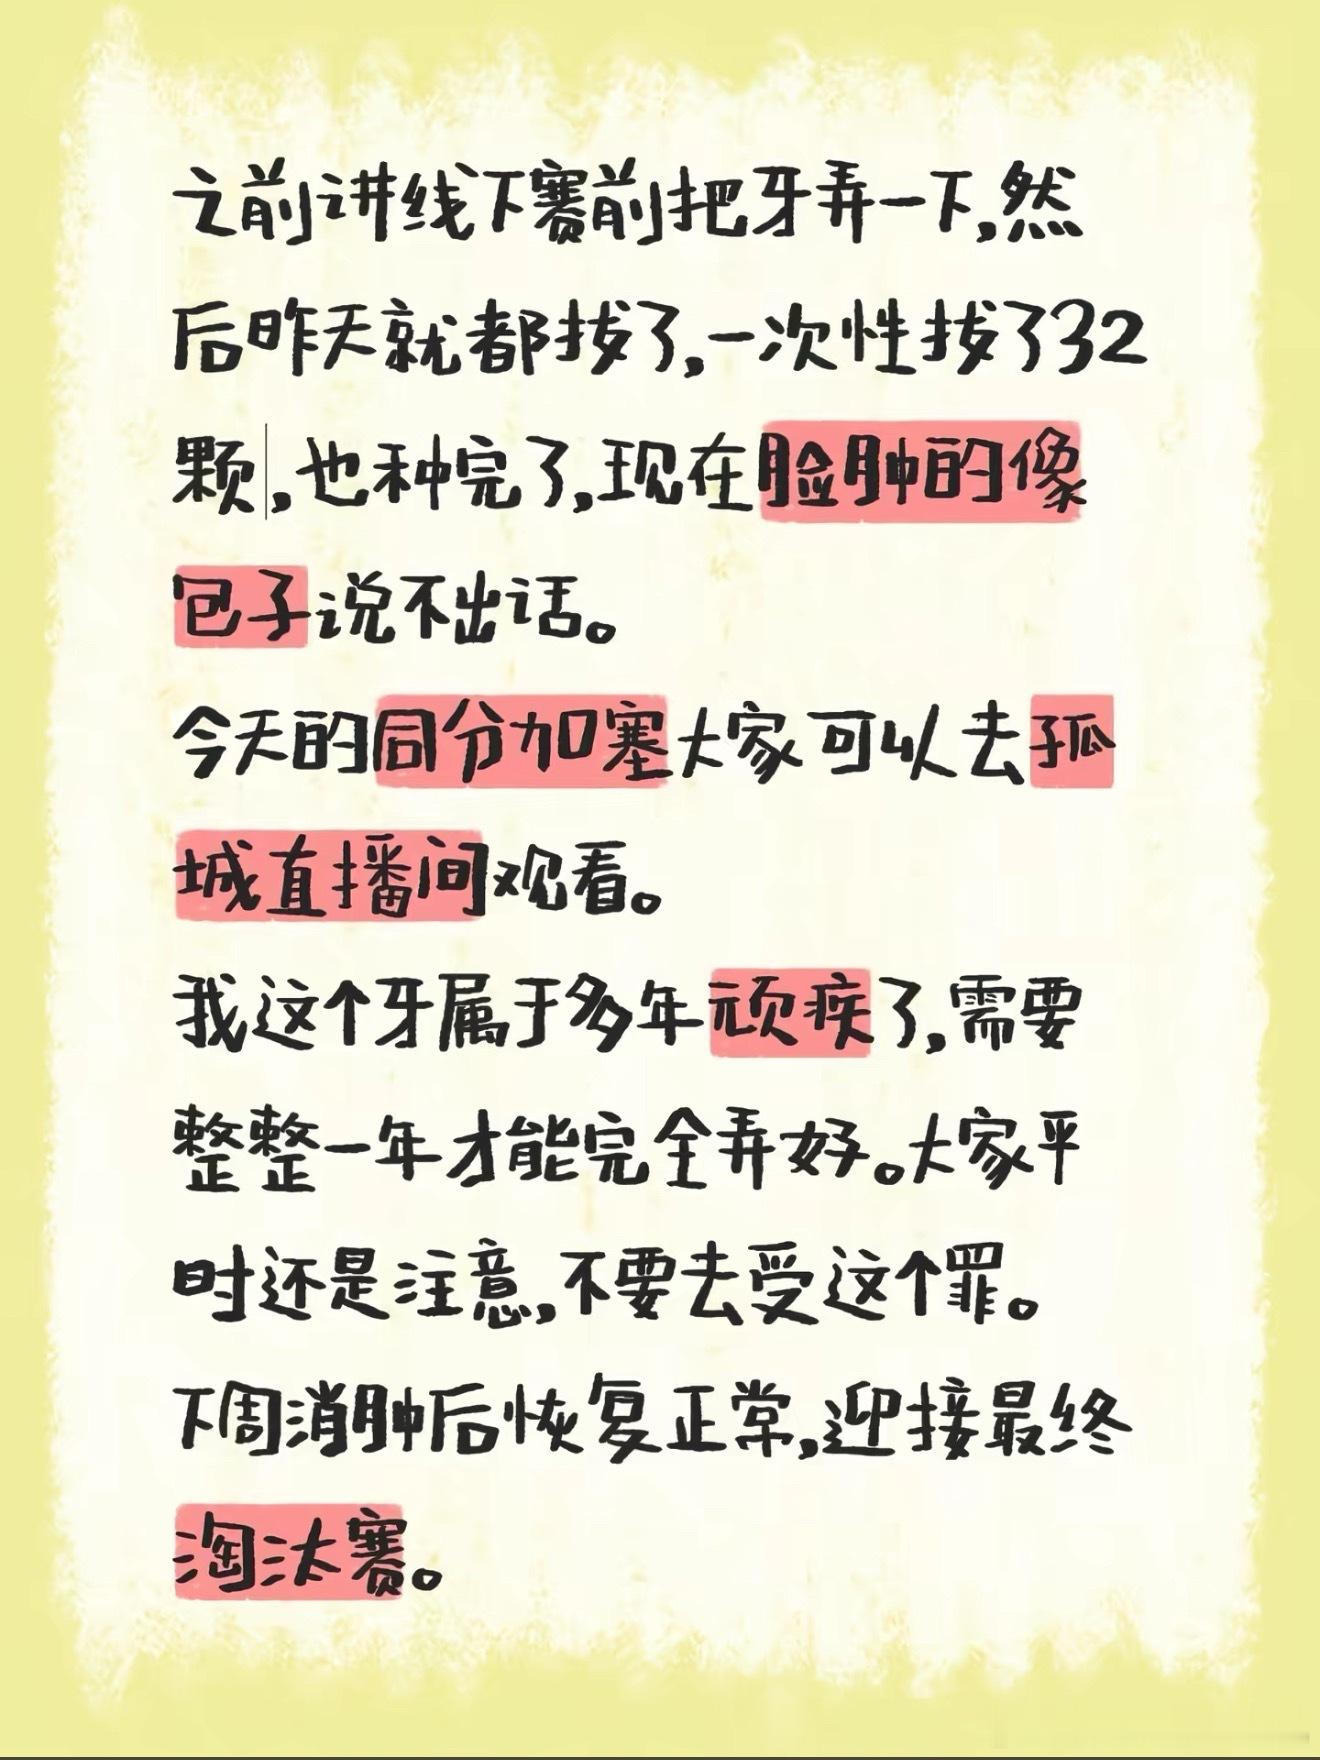 之前讲线下赛前把牙弄一下,然
后昨天就都拔了,一次性拔了32
颗,也种完了,现在脸肿的像
包子说不出话。
今天的同分加塞大家可以去孤
城直播间观看。
我这个牙属于多年顽疾了,需要
整整一年才能完全弄好。大家平
时还是注意,不要去受这个罪。
下周消肿后恢复正常,迎接最终
淘汰赛。